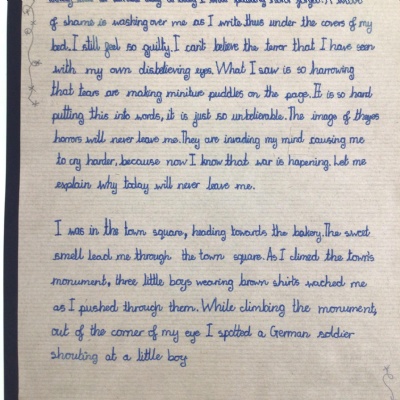 of shame is washing over me as I write thus under the covers of my
bed. I still feel so guilty. I cant believe the terror that I have seen
with my own disbelieving eyes. What I saw is so harrowing
that tears are making miniture puddles on the page. It is so hard
putting this into words, it is just so unbelievable. The image of theyes
horrors will never leave me. They are invading my mind causing me
to cry harder, because now I know that war is hapening. Let me
explain why today will never leave me.
I was in the town square, heading towards the bakery. The sweet
smell lead me through the town square. As I climed the town's
monument, three little boys wearing brown shirts wached me
as I pushed through them. While climbing the monument,
out of the corner of my eye I spotted a German soldier
shouting at a little boy